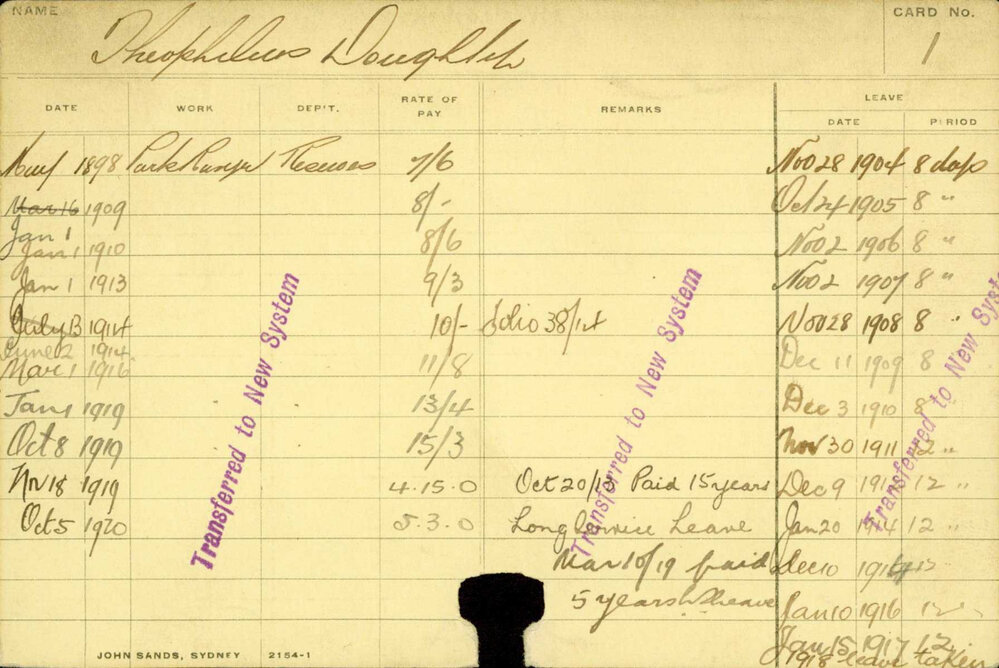 NAME
CARD No.
Theophilus Doughty
1
DATE WORK DEP'T. RATE OF PAY REMARKS LEAVE
DATE PERIOD
1898 Park Ranger Reserves 7/6 Nov 28 1904 8 days
Mar 16 1909 8/- Oct 24 1905 8 "
Jan 1
Jan 1 1910 8/6 Nov 2 1906 8 "
Jan 1 1913 9/3 Nov 2 1907 8 "
July 13 1914 10/- folio 38/14 Nov 28 1908 8 "
June 2 1914
Mar 1 1916 11/8 Dec 11 1909 8
Jan 1 1919 13/4 Dec 3 1910 8
Oct 8 1919 15/3 Nov 30 1911 12 "
Nov 18 1919 4.15.0 Oct 20/13 Paid 15 years Dec 9 12 "
Oct 5 1920 5.3.0 Long Service Leave Jan 20 1914 12 "
Mar 10/19 paid Dec 10 12
5 years leave Jan 10 1916 12 "
Jan 15 1917 12
1918 leave taken
Transferred to New System
Transferred to New System
Transferred to New System
JOHN SANDS, SYDNEY 2154-1